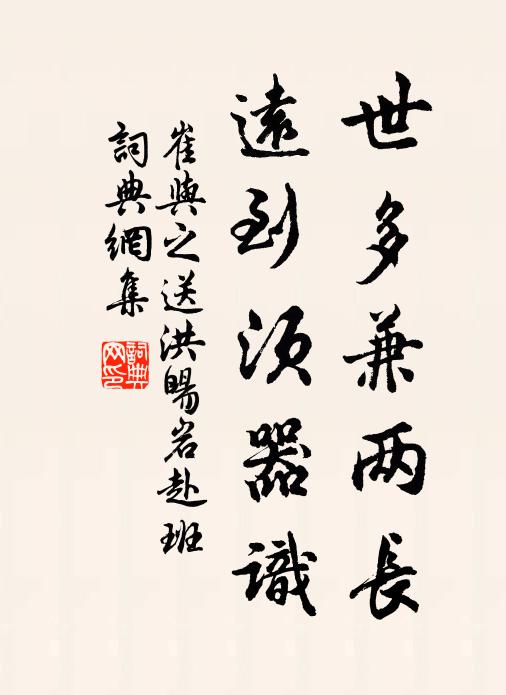 世多兼两長
遠到須器識
崔與之送洪賜岩赴班
詞典網集
詞典網印